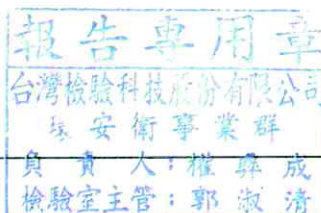 報告專用章
台灣檢驗科技股份有限公司
環安衛事業群
負責人:楊舜成
檢驗室主管:郭淑清